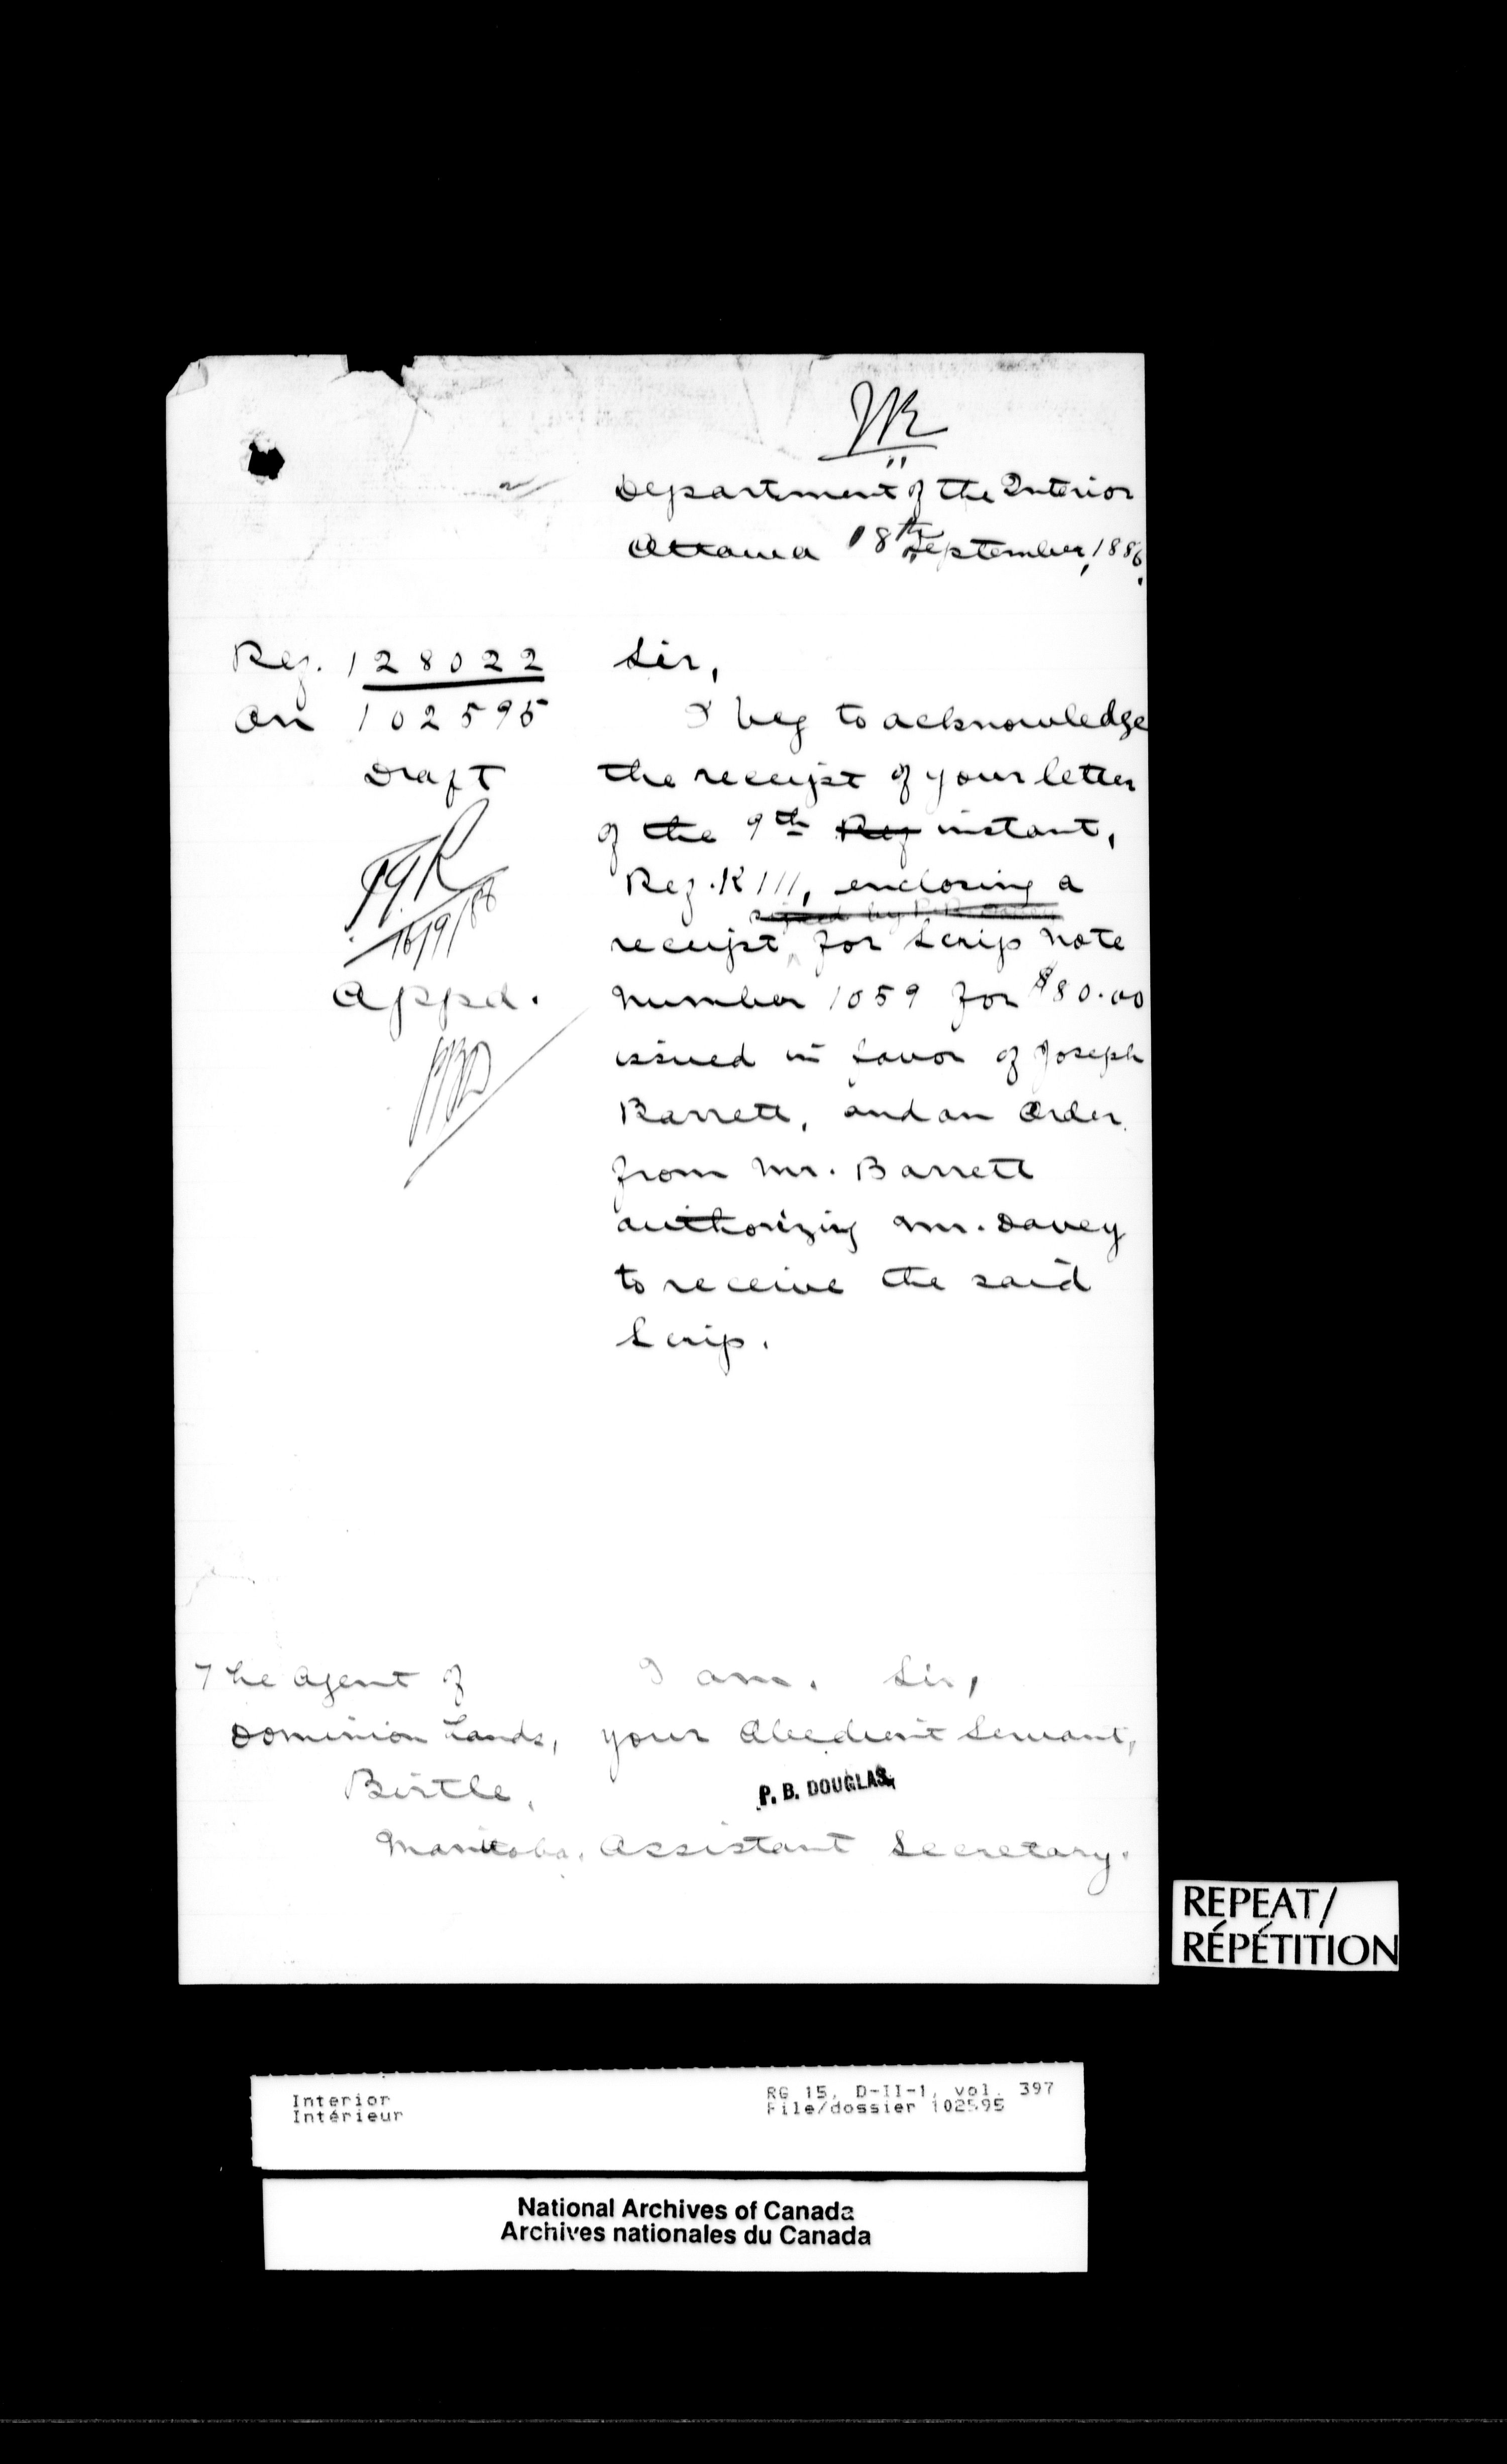 Department of the Interior
Ottawa 18th September, 1886.
Reg. 128022
On 102595
Draft
16/9/86
Appd.
Sir,
I beg to acknowledge
the receipt of your letter
of the 9th Ref instant,
Ref. K 111, enclosing a
signed by
receipt for Scrip Note
Number 1059 for $80.00
issued in favor of Joseph
Barrett, and an Order
from Mr. Barrett
authorizing Mr. Davey
to receive the said
Scrip.
I am. Sir,
your Obedient Servant,
P. B. DOUGLAS,
Assistant Secretary.
The Agent of
Dominion Lands,
Birtle,
Manitoba.
REPEAT/
RÉPÉTITION
Interior
Intérieur
RG 15, D-II-1, vol. 397
File/dossier 102595
National Archives of Canada
Archives nationales du Canada